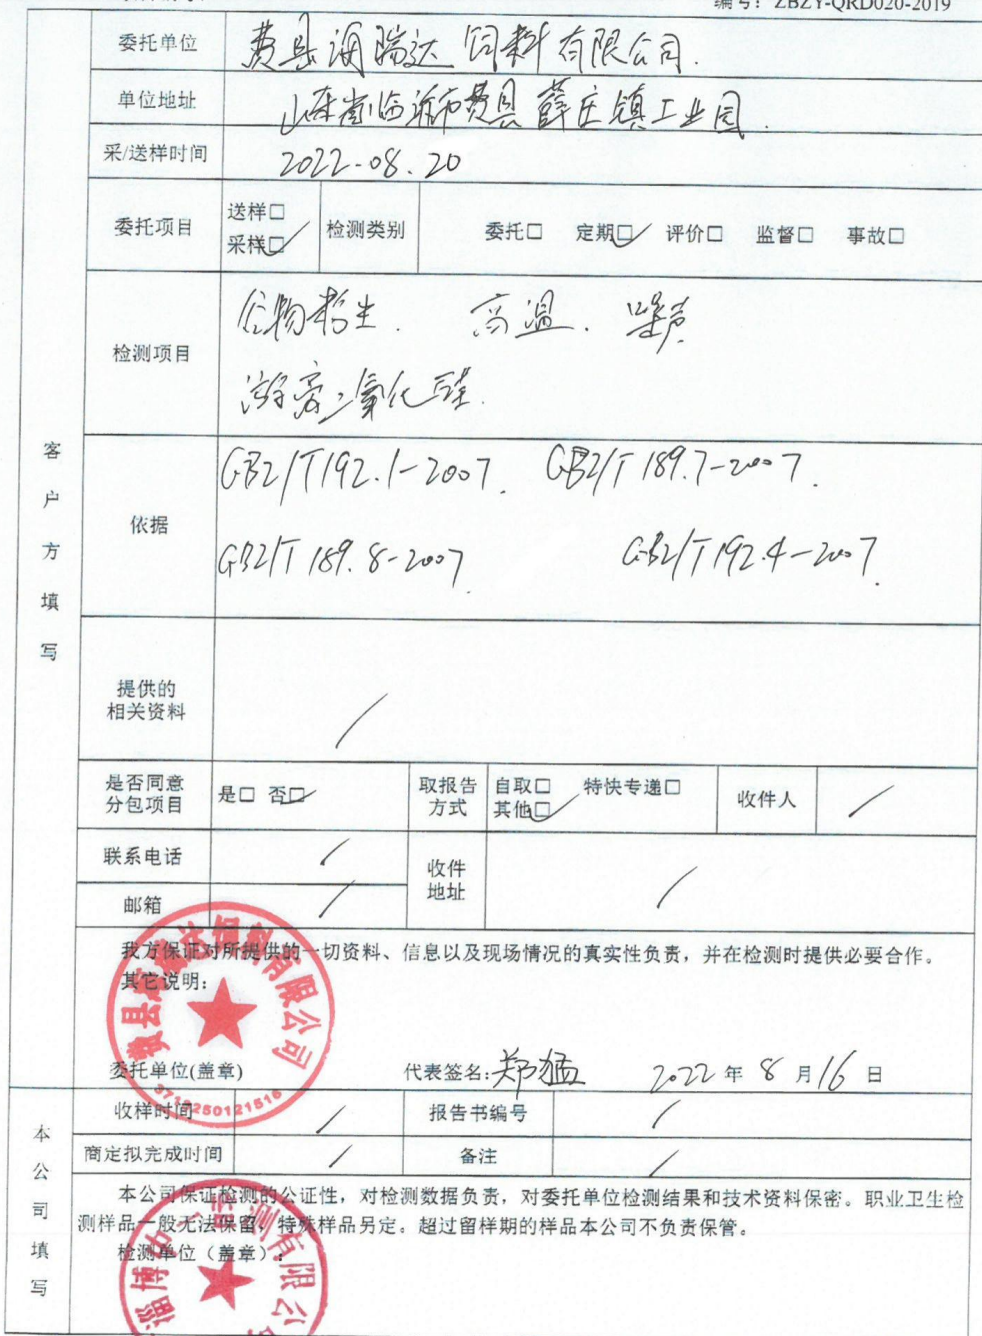 编号：ZBZY-QRD020-2019
委托单位 费县润瑞达饲料有限公司.
单位地址 山东省临沂市费县薛庄镇工业园.
采/送样时间 2022-08.20
委托项目 送样□ 采样☑ 检测类别 委托□ 定期☑ 评价□ 监督□ 事故□
检测项目 谷物粉尘. 高温. 噪声
游离二氧化硅.
客户方填写
依据 GBZ/T192.1-2007. GBZ/T189.7-2007.
GBZ/T189.8-2007 GBZ/T192.4-2007.
提供的
相关资料 /
是否同意
分包项目 是□ 否☑ 取报告
方式 自取□ 特快专递□
其他☑ 收件人 /
联系电话 / 收件
地址 /
邮箱 /
我方保证对所提供的一切资料、信息以及现场情况的真实性负责，并在检测时提供必要合作。
其它说明：
费县 有限公司
3713250121516
委托单位(盖章) 代表签名:郑猛 2022年8月16日
本公司填写
收样时间 / 报告书编号 /
商定拟完成时间 / 备注 /
本公司保证检测的公证性，对检测数据负责，对委托单位检测结果和技术资料保密。职业卫生检
测样品一般无法保留，特殊样品另定。超过留样期的样品本公司不负责保管。
检测单位（盖章）：
淄博 检测有限公司